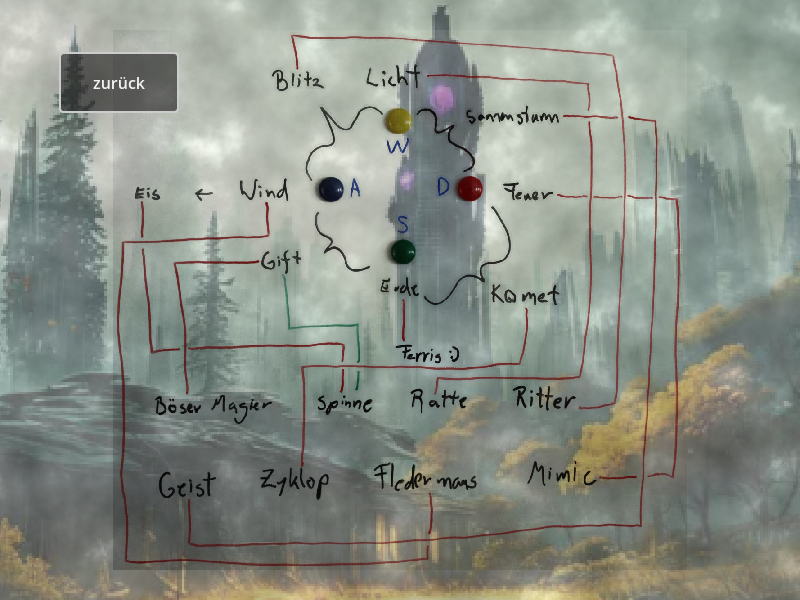 zurück
Blitz
Licht
W
Eis ← Wind
A
D
Feuer
S
Gift
Erde
Komet
Ferris :)
Böser Magier
Spinne
Ratte
Ritter
Geist
Zyklop
Fledermaus
Mimic